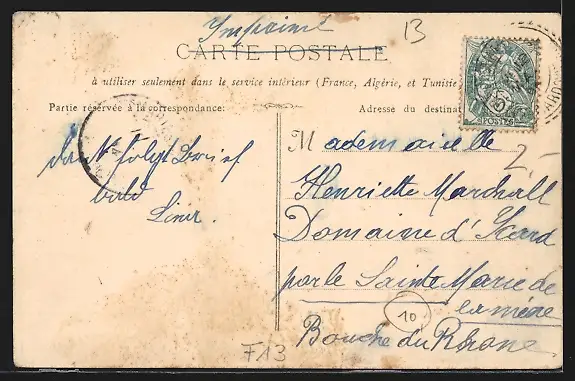 Imprimé
13
CARTE POSTALE
à utiliser seulement dans le service intérieur (France, Algérie, et Tunisie
Partie réservée à la correspondance:
Adresse du destinat
POSTES
2-
Mademoiselle
Henriette Marchall
Domaine d'Icard
par le Sainte Marie de
la mère
Bouche du Rhone
bald
10
F13